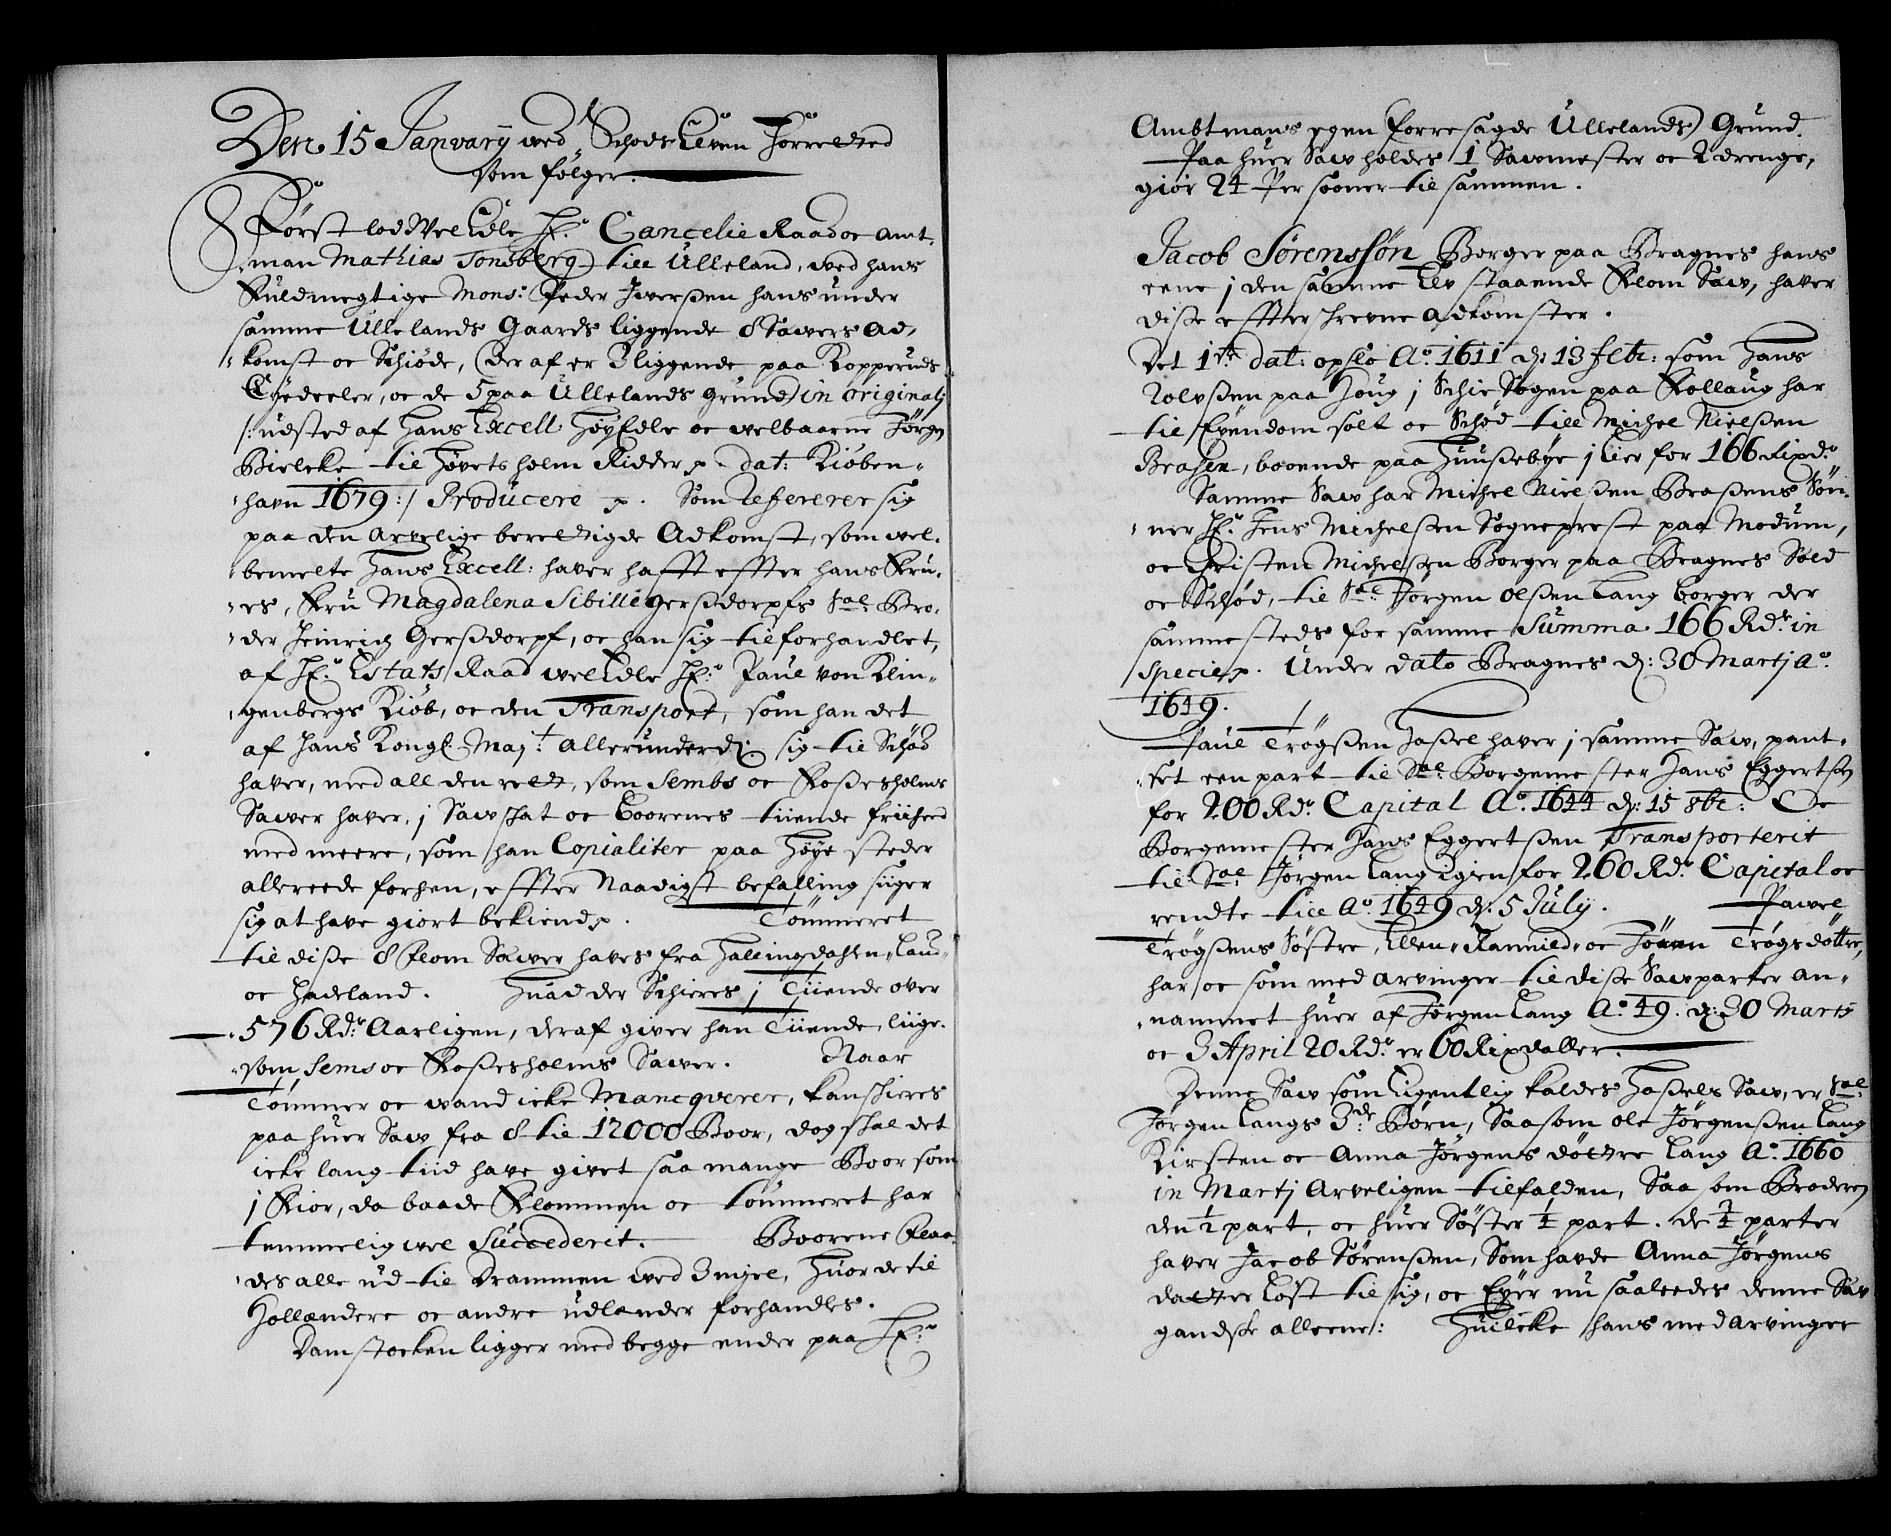 Den 15 January ved Schods Elven Forretted
som følger.
Først lod Vel Edle Hr. Cancelie Raad oc Amt-
man Mathias Tonsberg till Ulleland, ved hans
Fuldmegtige Mons: Peder Iversen hans under
samme Ullelands Gaards liggende 8 Sawers Ad-
komst oc Schiøde, (der af er 3 liggende paa Kopperuds
Eyedeeler, oc de 5 paa Ullelands grund) in originalj
/: udsted af Hans Excell Høy Edle oc velbaarne Jørgen
Bielcke til Høvetsholm Ridder p. dat: Kiøben-
havn 1679 :/ Producere p. Som refererer sig
paa den arvelige berettigde Adkomst, som vel-
bemelte Hans Excell: haver hafft effter hans Fru-
es, Fru Magdalena Sibille Gersdorpfs Sal: Bro-
der Heinrich Gersdorpf, oc han sig tilforhandlet,
af Hr. Estats Raad vel Edle Hr. Paul von Klin-
genbergs Kiøb, oc den Transport, som han det
af Hans Kongl. Mayt: allerunderd: sig til Schød
haver, med all den rett, som Sembs oc Fossesholms
Sawer haver, i Sawschat oc Boorenes tiiende friihed
med meere, som han Copialiter paa Høye steder
allereede forhen, effter Naadigst befalling siiger
sig at have giort bekiend p. Tømmeret
til disse 8 Flom Sawer haves fra Hallingdahlen, Land
oc Hadeland. Huad der Schieres i Tiiende over
576 Rdr. Aarligen, deraf giver han Tiiende, liige-
som Sems oc Fossesholms Sawer. Naar
Tømmer oc vand icke Mancqverer, kan schieres
paa huer Saw fra 8 til 12000 Boor, dog schal det
icke lang tiid have givet saa mange Boor som
i Fior, da baade Flommen oc tømmeret har
temmelig vel Succederit. Boorene flaa-
des alle ud til Drammen ved 3 mijl, Huor de til
Hollændere oc andre udlænder forhandles.
Damstocken ligger med begge ender paa Hr.
Ambtmans egen forresagde Ullelands Grund.
Paa huer Saw holdes 1 Sawmester oc 2 drenge,
giør 24 Persooner til sammen.
Jacob Sørenssøn Borger paa Bragnes hans
eene i den samme Elv staaende Flom Saw, haver
disse effterschrevne adkomster.
Det 1te dat: opslo Ao. 1611 d: 13 febr: som Hans
Rolvssen paa Houg i Schie Sogen paa Follaug har
til Eyendom solt oc Schød till Michel Nielssen
Brasen, boende paa Huusebye i Lier for 166 Rixdr.
Samme Saw har Michel Nielssen Brasens Søn-
ner Hr. Jens Michelssen Sogneprest paa Modum,
oc Christen Michelssen Borger paa Bragnes Sold
oc Schød, til Sal: Jørgen Olssen Lang borger der
samme steds for samme Summa 166 Rdr. in
specie p. Under dato Bragnes d: 30 Martj Ao.
1649.
Paul Trøgssen Hassel haver i samme Saw, pant-
set een part til Sal: Borgemester Hans Eggertsen
for 200 Rdr. Capital Ao. 1644 d: 15 8br: Oc
Borgemester Hans Eggertssen Transporterit
til Sal: Jørgen Lang igien for 260 Rdr. Capital oc
rendte till Ao. 1649 d: 5 July. Pawel
Trøgssens Søstre, Ellen, Rannild, oc Jøran Trøgsdøttre,
har oc som med arvinger til disse Sawparter an-
nammet huer af Jørgen Lang Ao. 49. d: 30 Martj
oc 3 April 20 Rdr. er 60 Rixdaller.
Denne Saw som Eigentlig kaldes Hassels Saw, er Sal:
Jørgen Langs 3de: Børn, Saasom Ole Jørgenssen Lang
Kirsten oc Anna Jørgens døttre Lang Ao. 1660
in Martj Arveligen tilfalden, Saasom Broderen
den 1/2 part, oc huer Søster 1/4 part. de 3/4 parter
haver Jacob Sørenssen, Som havde Anna Jørgens
datter Løst til sig, oc Eyer nu saaleedes denne Saw
gandske alleene: Huilcke hans med arvinger